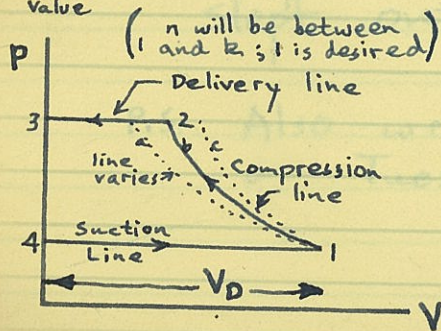 value
( n will be between
1 and k ; 1 is desired )
P
Delivery line
3
2
a
b
c
line
varies
Compression
line
Suction
Line
4
1
V_D
V